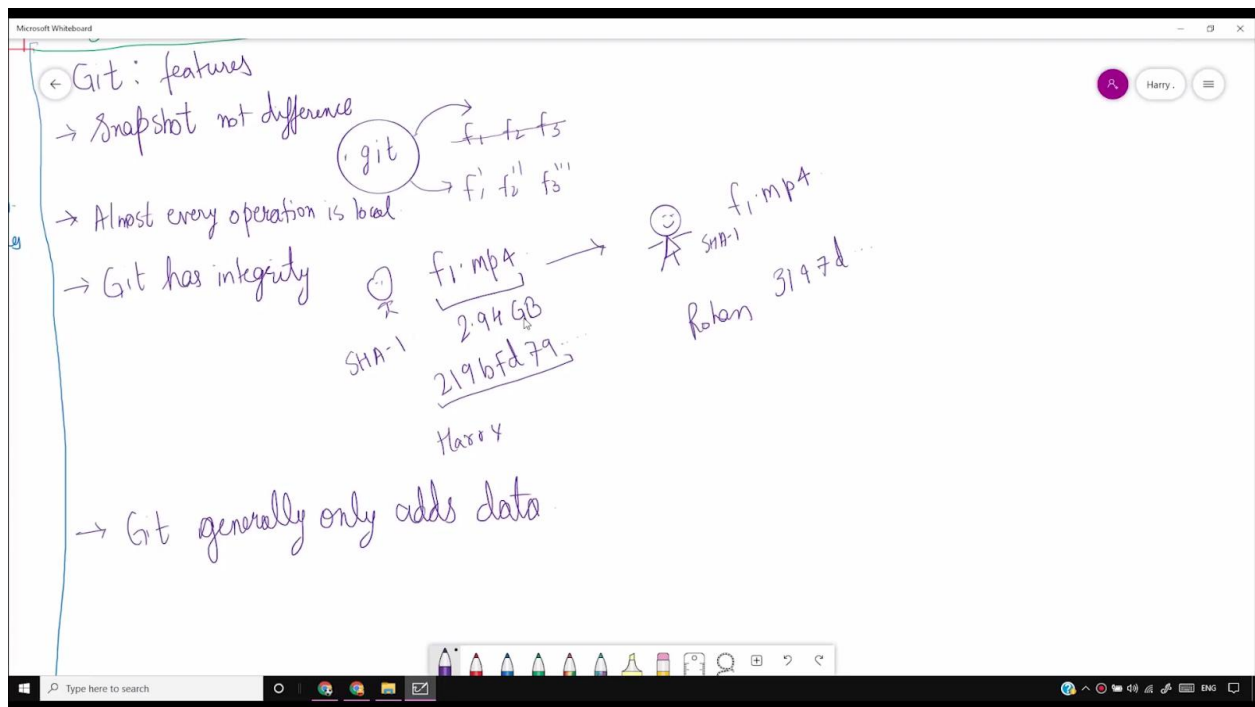 Microsoft Whiteboard
Git : features
Harry .
→ Snapshot not difference
.git
f1 f2 f3
f1' f2'' f3'''
→ Almost every operation is local.
→ Git has integrity
f1.mp4
2.94 GB
SHA-1
219bfd79....
Harry
f1.mp4
SHA-1
Rohan 3197d...
→ Git generally only adds data
Type here to search
ENG